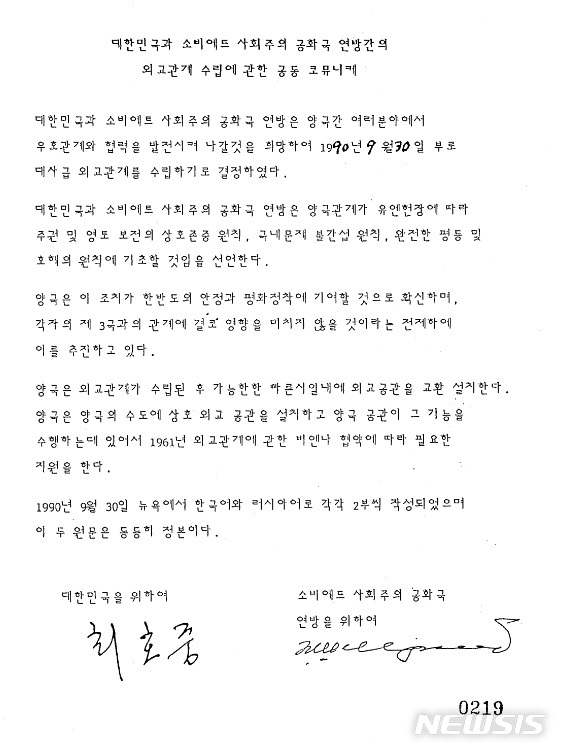 대한민국과 소비에트 사회주의 공화국 연방간의
외교관계 수립에 관한 공동 코뮤니케
대한민국과 소비에트 사회주의 공화국 연방은 양국간 여러분야에서
우호관계와 협력을 발전시켜 나갈것을 희망하여 1990년 9월 30일 부로
대사급 외교관계를 수립하기로 결정하였다.
대한민국과 소비에트 사회주의 공화국 연방은 양국관계가 유엔헌장에 따라
주권 및 영토 보전의 상호존중 원칙, 국내문제 불간섭 원칙, 완전한 평등 및
호혜의 원칙에 기초할 것임을 선언한다.
양국은 이 조치가 한반도의 안정과 평화정착에 기여할 것으로 확신하며,
각자의 제 3국과의 관계에 결코 영향을 미치지 않을 것이라는 전제하에
이를 추진하고 있다.
양국은 외교관계가 수립된 후 가능한한 빠른시일내에 외교공관을 교환 설치한다.
양국은 양국의 수도에 상호 외교 공관을 설치하고 양국 공관이 그 기능을
수행하는데 있어서 1961년 외교관계에 관한 비엔나 협약에 따라 필요한
지원을 한다.
1990년 9월 30일 뉴욕에서 한국어와 러시아어로 각각 2부씩 작성되었으며
이 두 원문은 동등히 정본이다.
대한민국을 위하여
소비에트 사회주의 공화국
연방을 위하여
최호중
0219
NEWSIS